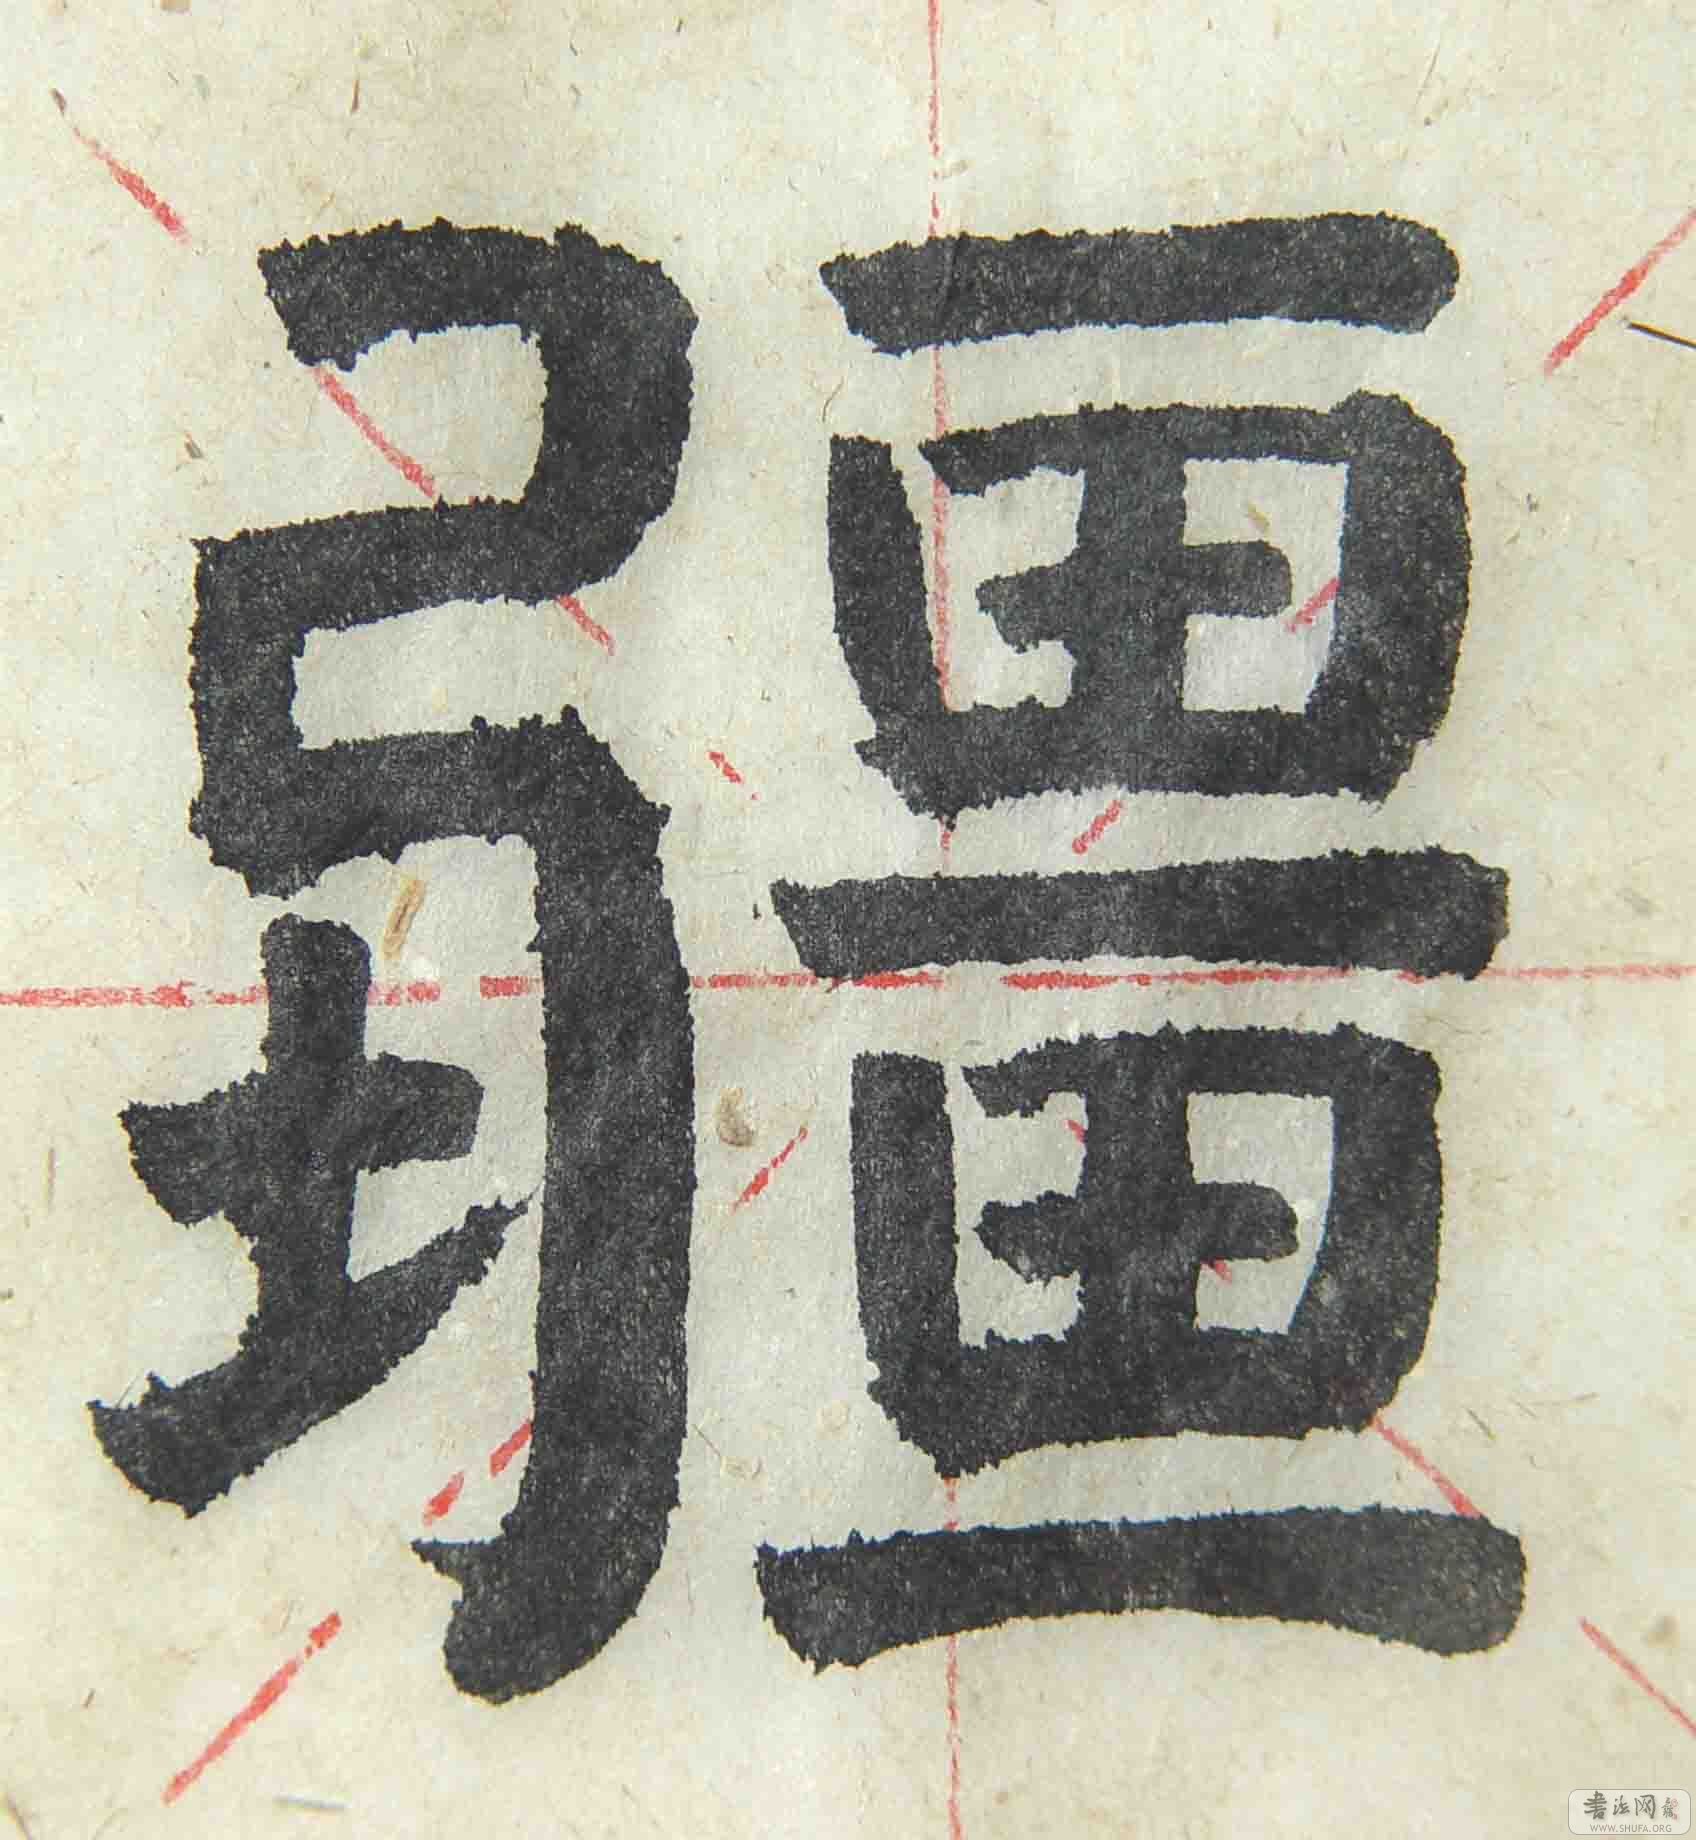 疆
书法网
WWW.SHUFA.ORG